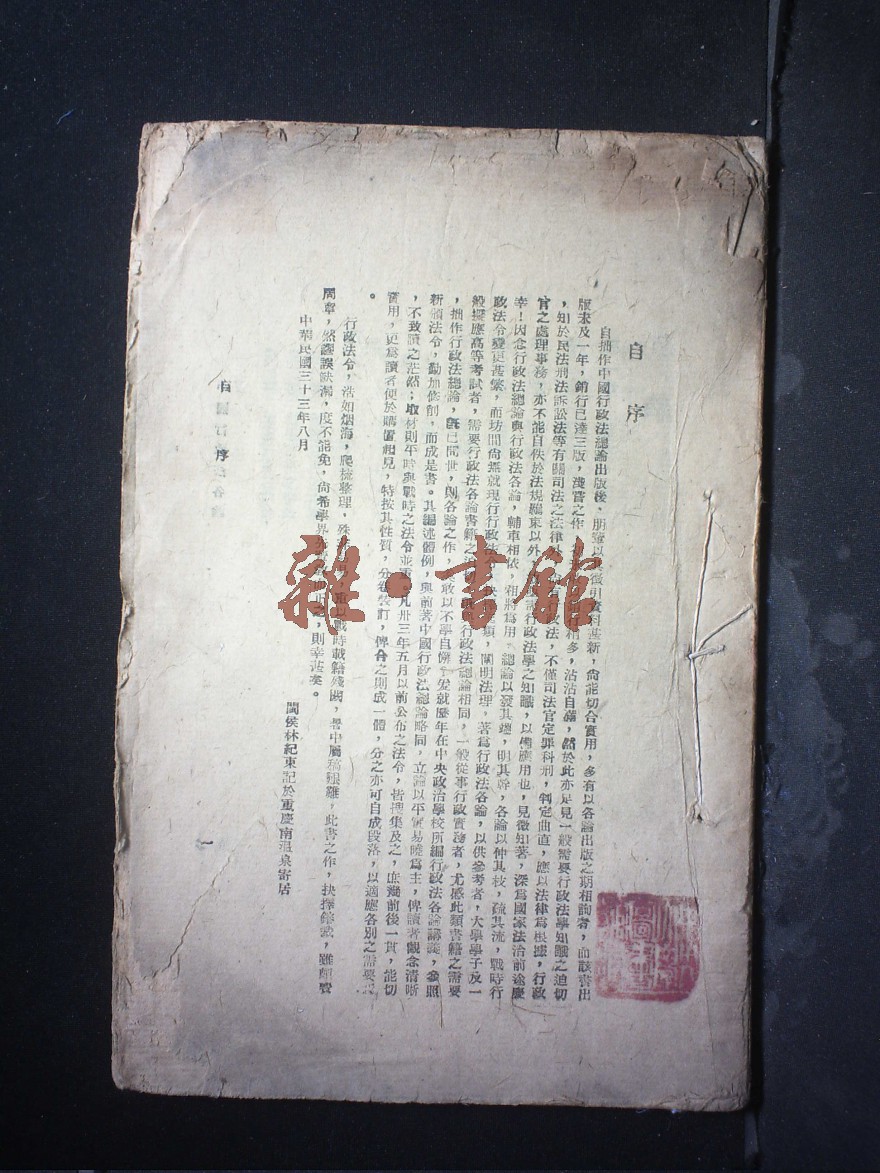 自序
自拙作中國行政法總論出版後、朋儕以其徵引資料甚新，尙能切合實用，多有以各論出版之期相詢者，而該書出
版未及一年，銷行已達三版，淺嘗之作，相多，沾沾自喜，然於此亦足見一般需要行政法學知識之迫切
，知於民法刑法訴訟法等有關司法之法律政法，不僅司法官定罪科刑，判定曲直，應以法律爲根據，行政
官之處理事務，亦不能自佚於法規羈束以外，行政法學之知識，以備應用也，見微知著，深爲國家法治前途慶
幸！因念行政法總論與行政法各論，輔車相依，相將爲用，總論以發其凡，明其幹，各論以伸其枝，疏其流，戰時行
政法令變更甚繁，而坊間尙無就現行行政法類，闡明法理，著爲行政法各論，以供參考者，大學學子及一
般擬應高等考試者，需要行政法各論書籍之與行政法總論相同，一般從事行政實務者，尤感此類書籍之需要
，拙作行政法總論，旣已問世，則各論之作，敢以不學自懈，爰就歷年在中央政治學校所編行政法各論講義，參照
新頒法令，勤加修削，而成是書。其編述體例，與前著中國行政法總論略同，立論以平實易曉爲主，俾讀者觀念清晰
，不致讀之茫然；取材則平時與戰時之法令並重，凡卅三年五月以前公布之法令，皆搜集及之，庶幾前後一貫，能切
實用，更爲讀者便於購置相見，特按其性質，分卷裝訂，俾合之則成一體，分之亦可自成段落，以適應各別之需要
。
行政法令，浩如烟海，爬梳整理，殊以戰時載籍殘闕，暑中屬稿艱難，此書之作，抉擇綜覈，雖頗費
周章，然謬誤缺漏，度不能免，尙希學界之，則幸甚矣。
閩侯林紀東記於重慶南温泉寄居
中華民國三十三年八月
自序
雜·書館